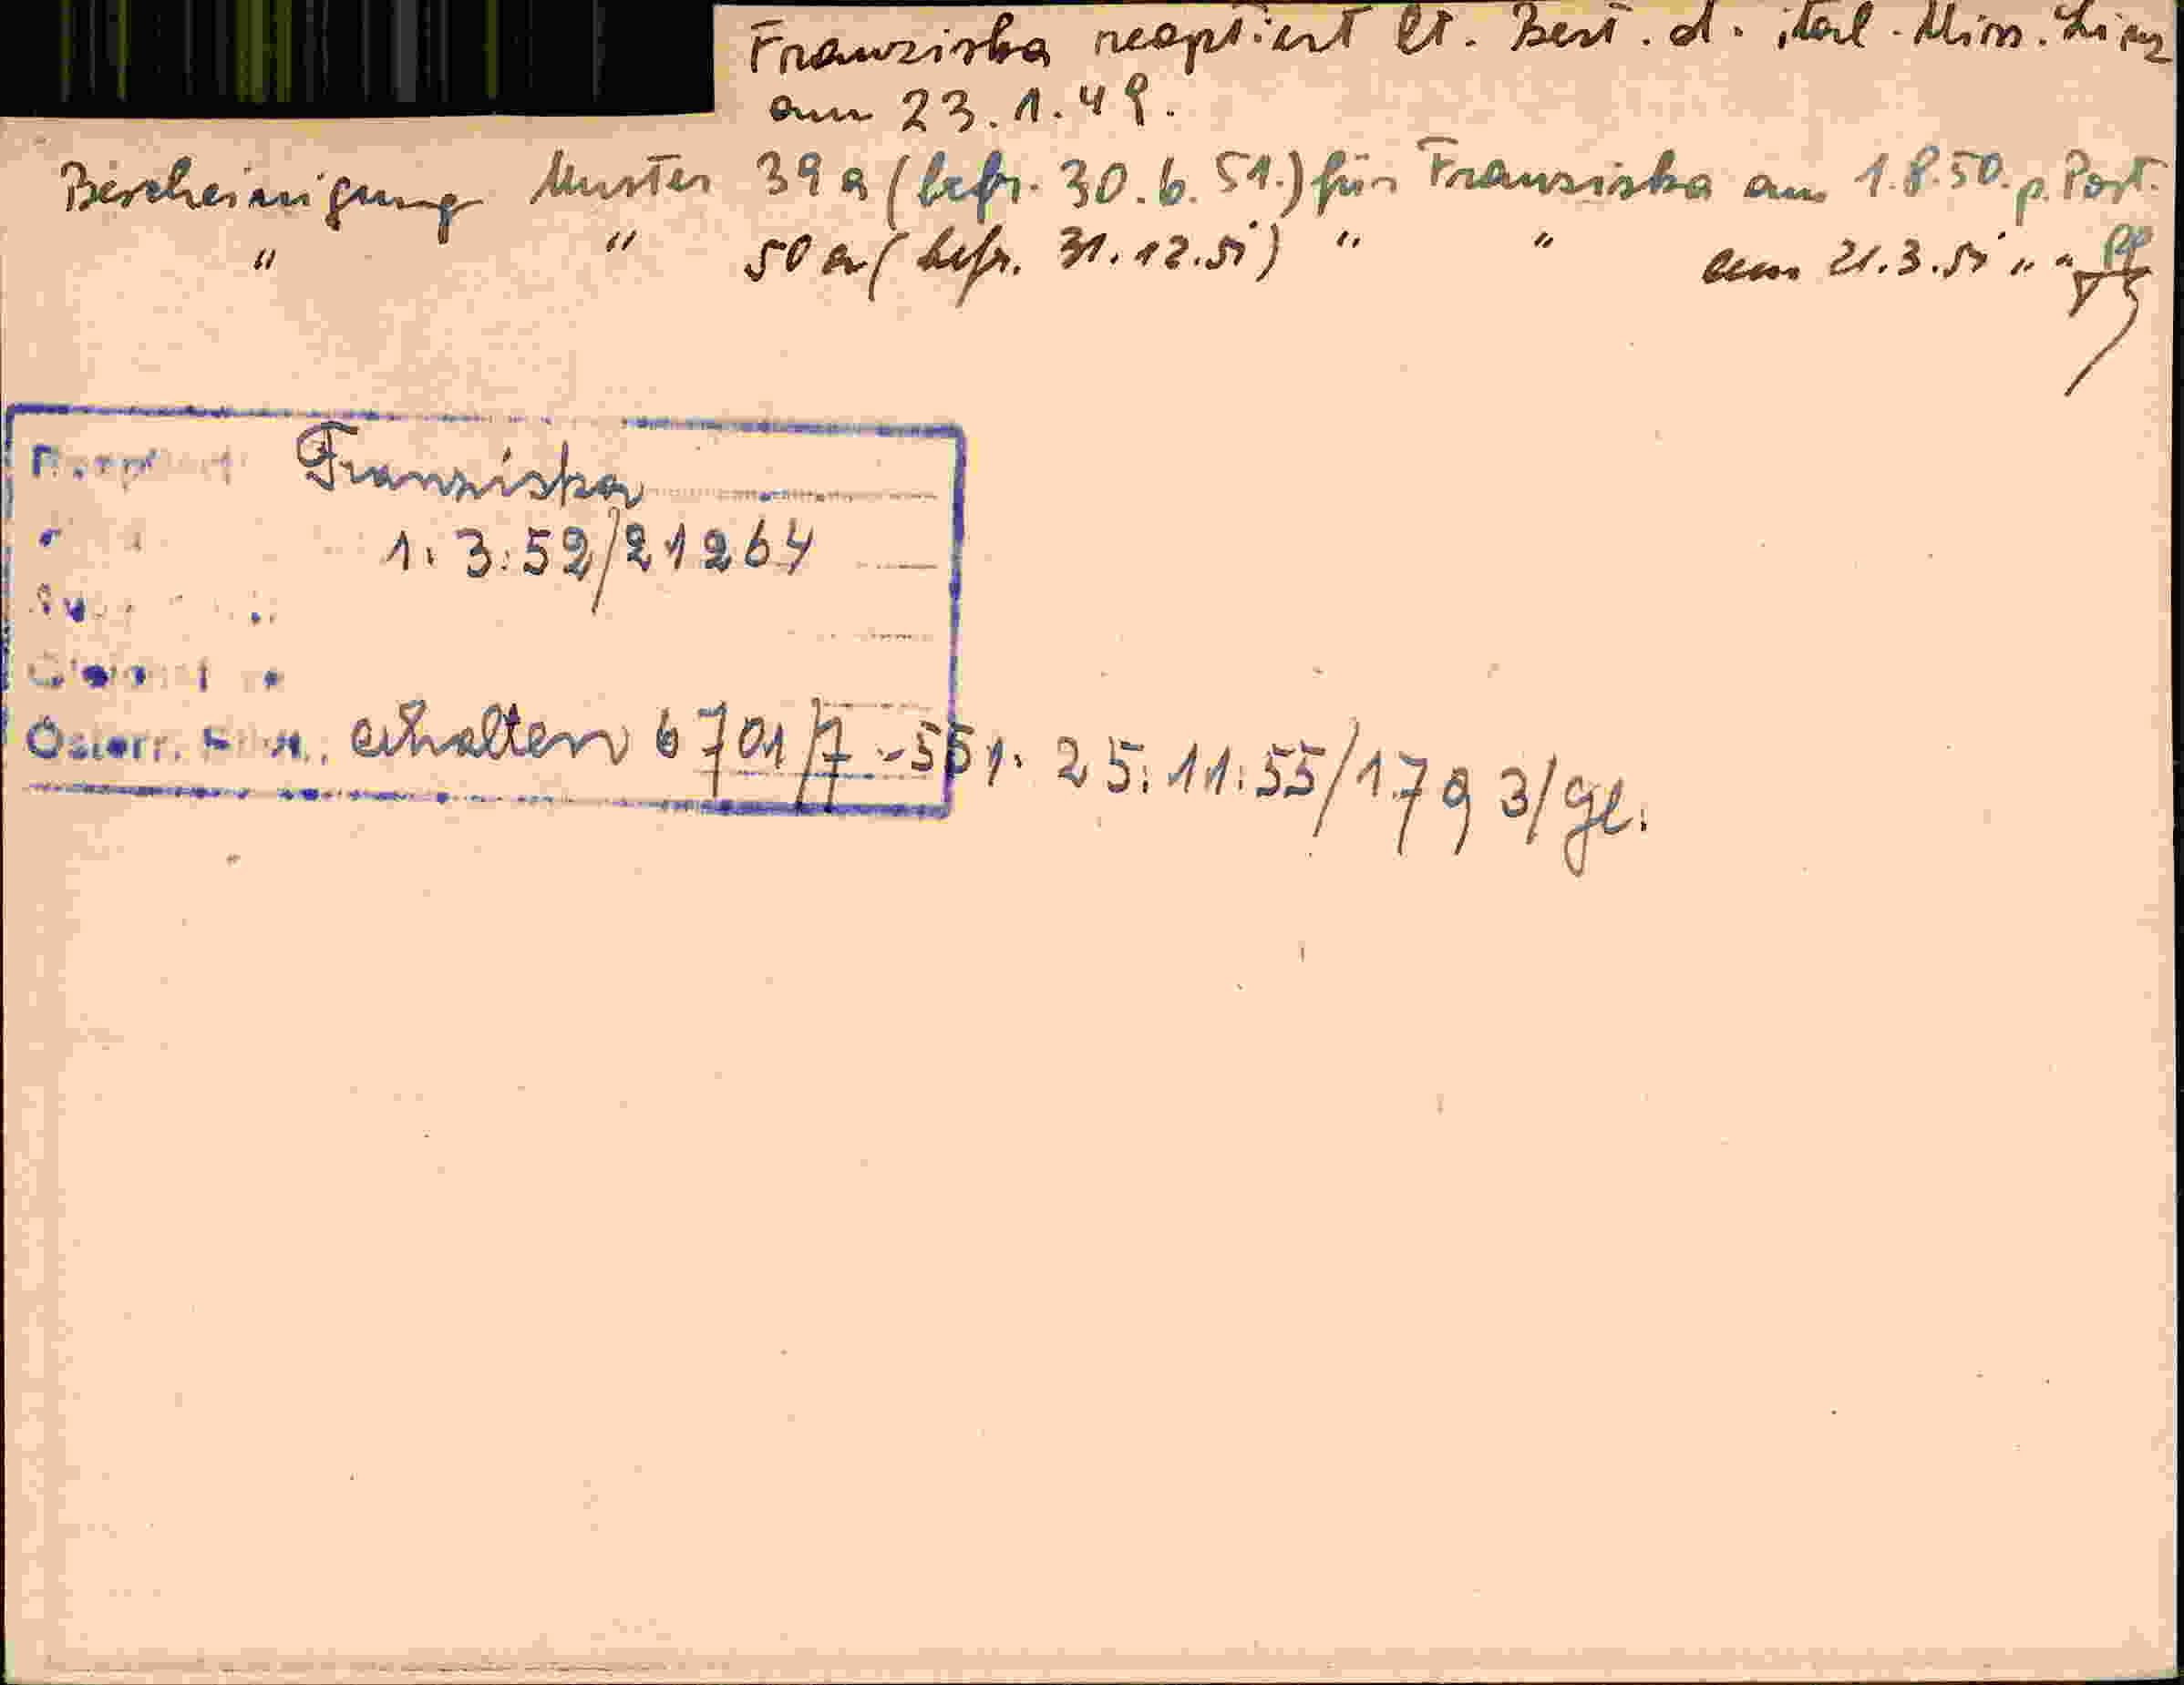 Franziska reoptiert lt. Best. d. ital. Miss. Linz
am 23.1.49.
Bescheinigung Muster 39a (befr. 30.6.51.) für Franziska am 1.8.50. p. Post.
" " 50a (befr. 31.12.51) " " am 21.3.51 " "
Franziska
1.3.52/21264
Österr. erhalten 6701/7-551. 25.11.55/1793/gl.